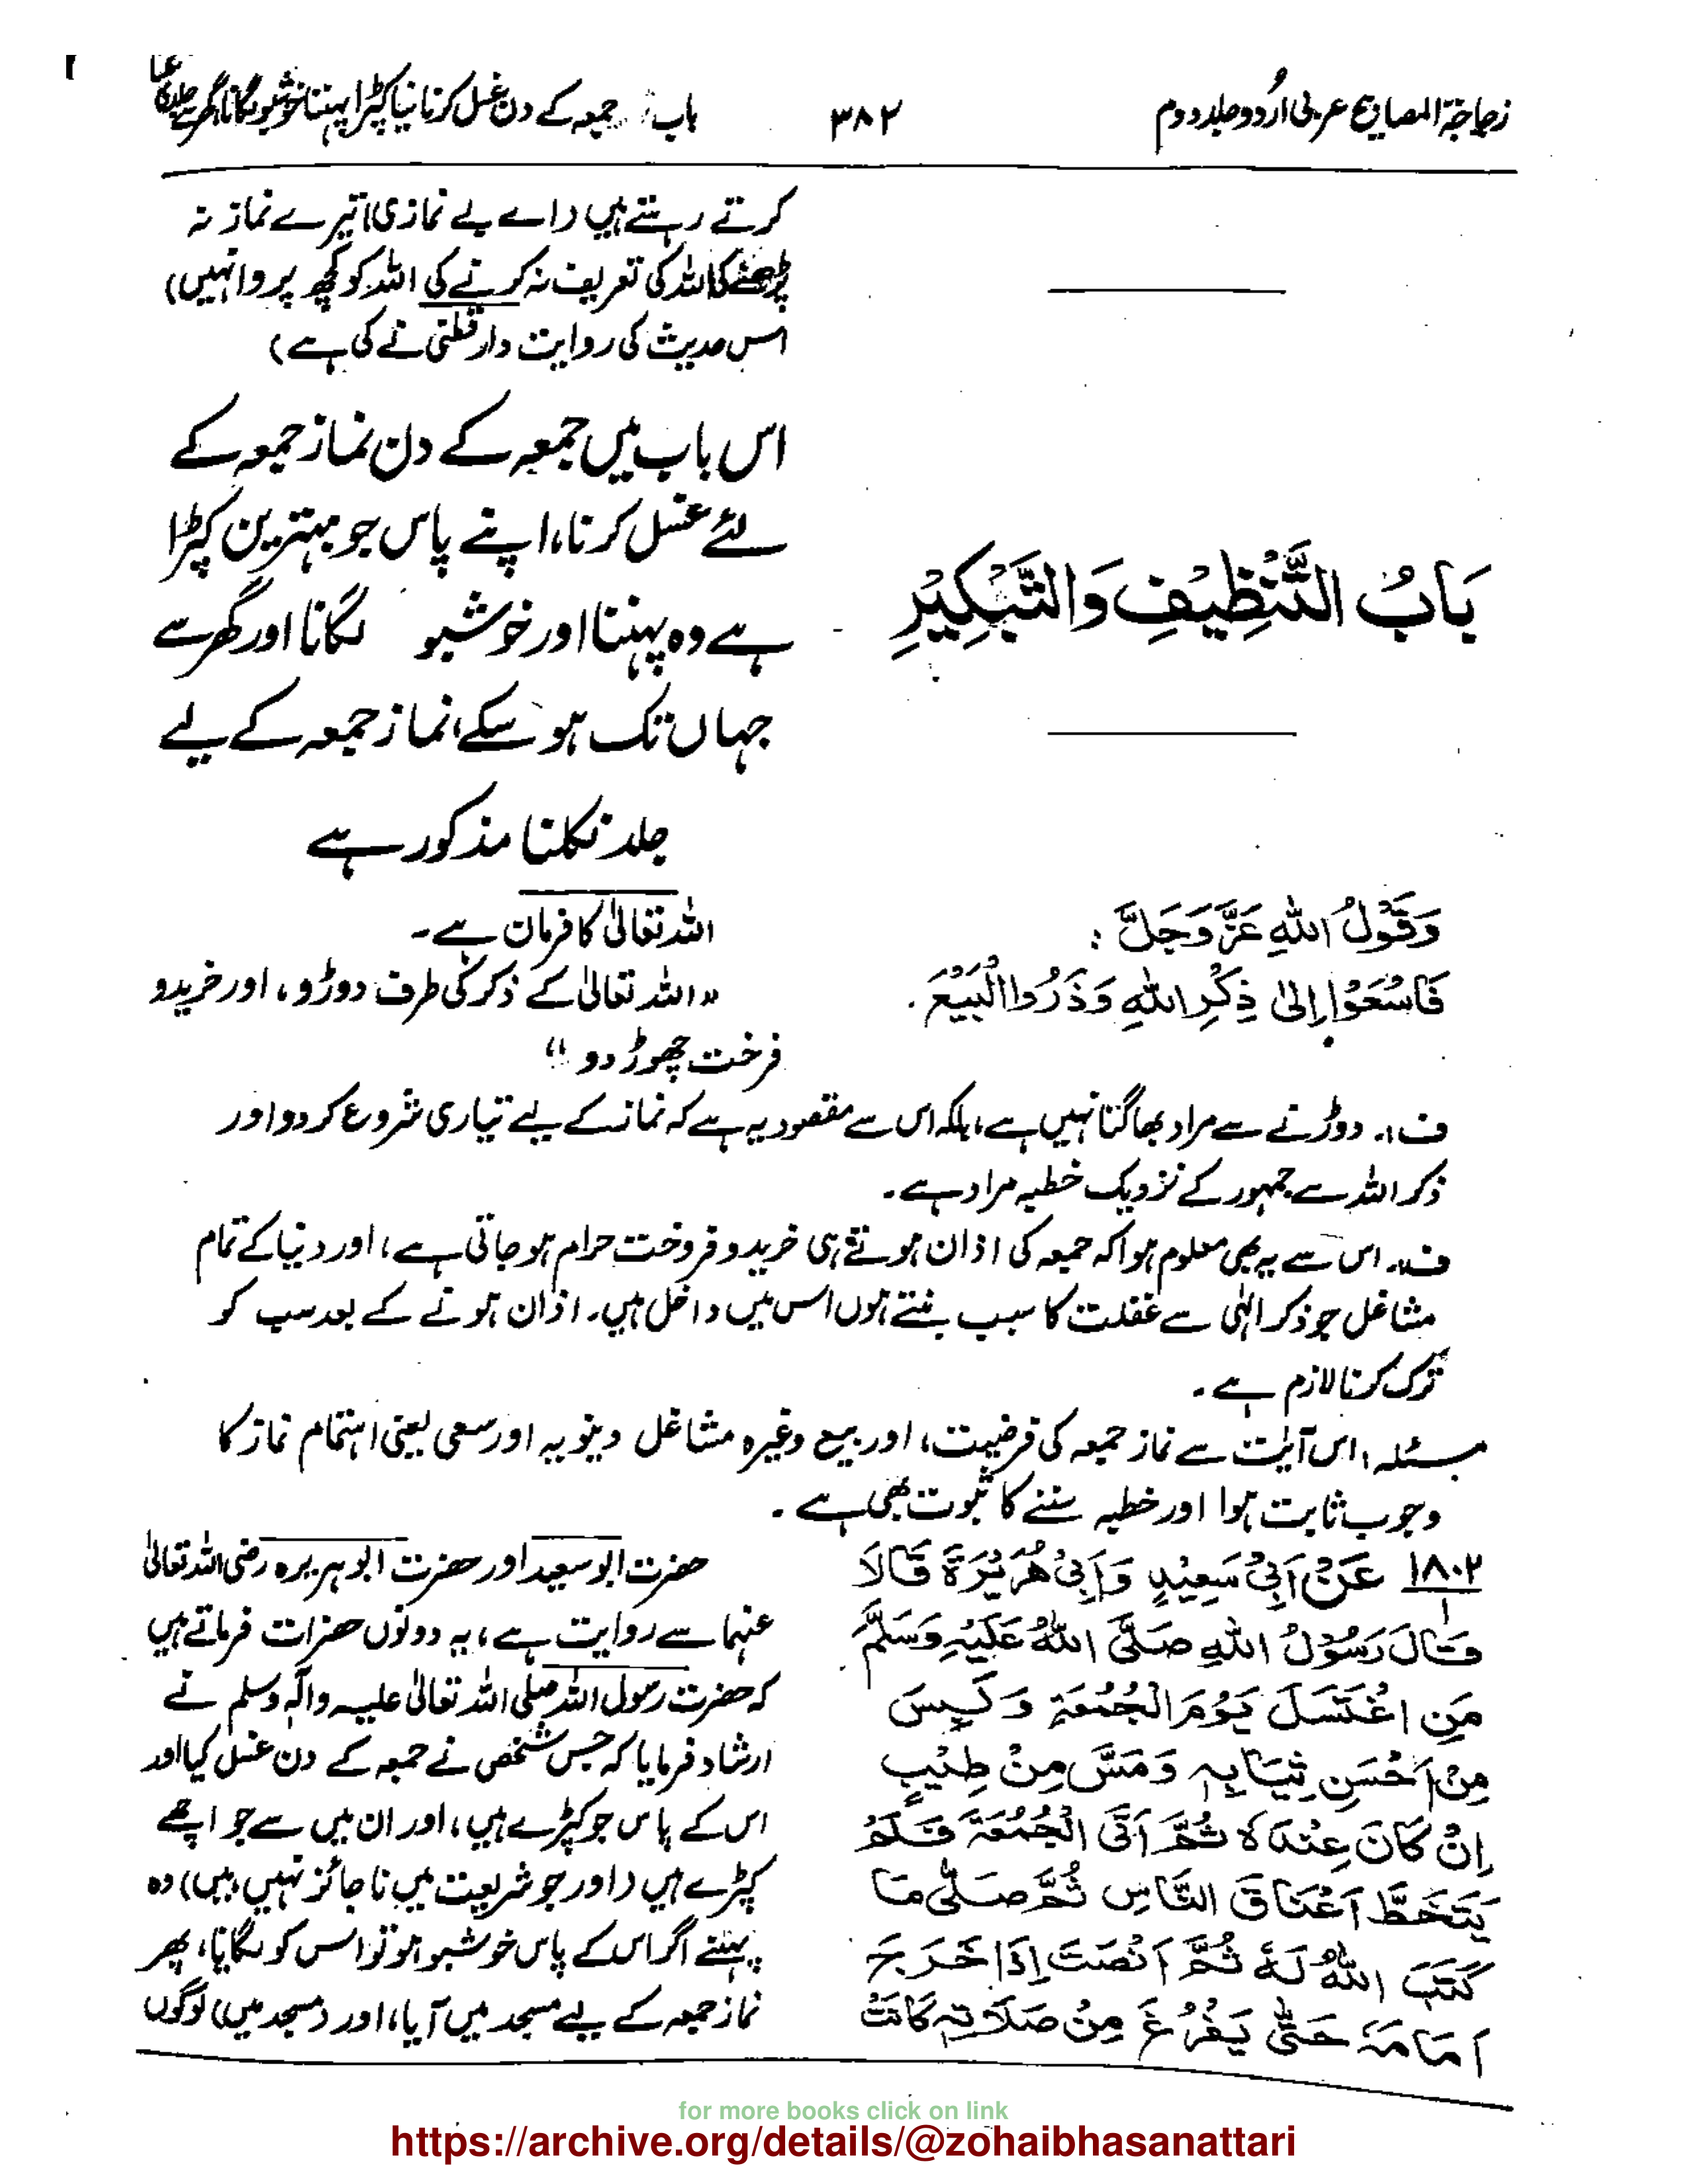 زجاجۃ المصابیح عربی اُردو جلد دوم
۳۸۲
باب جمعہ کے دن غسل کرنا نیا کپڑا پہننا خوشبو لگانا گھر سے جلدی
کرتے رہتے ہیں (اے بے نمازی! تیرے نماز نہ
پڑھنے کا اللہ کی تعریف نہ کرنے کی اللہ کو کچھ پروا نہیں)
اس حدیث کی روایت دارقطنی نے کی ہے)
بَابُ التَّنْظِيْفِ وَالتَّبْكِيْرِ
اس باب میں جمعہ کے دن نماز جمعہ کے
لئے غسل کرنا، اپنے پاس جو بہترین کپڑا
ہے وہ پہننا اور خوشبو لگانا اور گھر سے
جہاں تک ہو سکے، نماز جمعہ کے لیے
جلد نکلنا مذکور ہے
وَقَوْلُ اللهِ عَزَّ وَجَلَّ :
فَاسْعَوْا إِلىٰ ذِكْرِ اللهِ وَذَرُوا الْبَيْعَ .
اللہ تعالیٰ کا فرمان ہے۔
"اللہ تعالیٰ کے ذکر کی طرف دوڑو، اور خریدو
فرخت چھوڑ دو"
ف۱۔ دوڑنے سے مراد بھاگنا نہیں ہے، بلکہ اس سے مقصود یہ ہے کہ نماز کے لیے تیاری شروع کر دو اور
ذکر اللہ سے جمہور کے نزدیک خطبہ مراد ہے۔
ف۔ اس سے یہ بھی معلوم ہوا کہ جمعہ کی اذان ہوتے ہی خرید و فروخت حرام ہو جاتی ہے، اور دنیا کے تمام
مشاغل جو ذکر الٰہی سے غفلت کا سبب بنتے ہوں اس میں داخل ہیں۔ اذان ہونے کے بعد سب کو
ترک کرنا لازم ہے۔
مسئلہ، اس آیت سے نماز جمعہ کی فرضیت، اور بیع وغیرہ مشاغل دینویہ اور سعی یعنی اہتمام نماز کا
وجوب ثابت ہوا اور خطبہ سننے کا ثبوت بھی ہے۔
۱۸۰۲ عَنْ اَبِيْ سَعِيْدٍ وَاَبِيْ هُرَيْرَةَ قَالَا
قَالَ رَسُوْلُ اللهِ صَلَّى اللهُ عَلَيْهِ وَسَلَّمَ
مَنِ اغْتَسَلَ يَوْمَ الْجُمُعَةِ وَلَبِسَ
مِنْ اَحْسَنِ ثِيَابِهٖ وَمَسَّ مِنْ طِيْبٍ
اِنْ كَانَ عِنْدَهٗ ثُمَّ اَتَى الْجُمُعَةَ فَلَمْ
يَتَخَطَّ اَعْنَاقَ النَّاسِ ثُمَّ صَلّٰى مَا
كَتَبَ اللهُ لَهٗ ثُمَّ اَنْصَتَ اِذَا خَرَجَ
اِمَامُهٗ حَتّٰى يَفْرُغَ مِنْ صَلَاتِهٖ كَانَتْ
حضرت ابو سعید اور حضرت ابو ہریرہ رضی اللہ تعالیٰ
عنہما سے روایت ہے، یہ دونوں حضرات فرماتے ہیں
کہ حضرت رسول اللہ صلی اللہ تعالیٰ علیہ وآلہٖ وسلم نے
ارشاد فرمایا کہ جس شخص نے جمعہ کے دن غسل کیا اور
اس کے پاس جو کپڑے ہیں، اور ان میں سے جو اچھے
کپڑے ہیں (اور جو شریعت میں ناجائز نہیں ہیں) وہ
پہنے اگر اس کے پاس خوشبو ہو تو اس کو لگایا، پھر
نماز جمعہ کے لیے مسجد میں آیا، اور (مسجد میں) لوگوں
for more books click on link
https://archive.org/details/@zohaibhasanattari